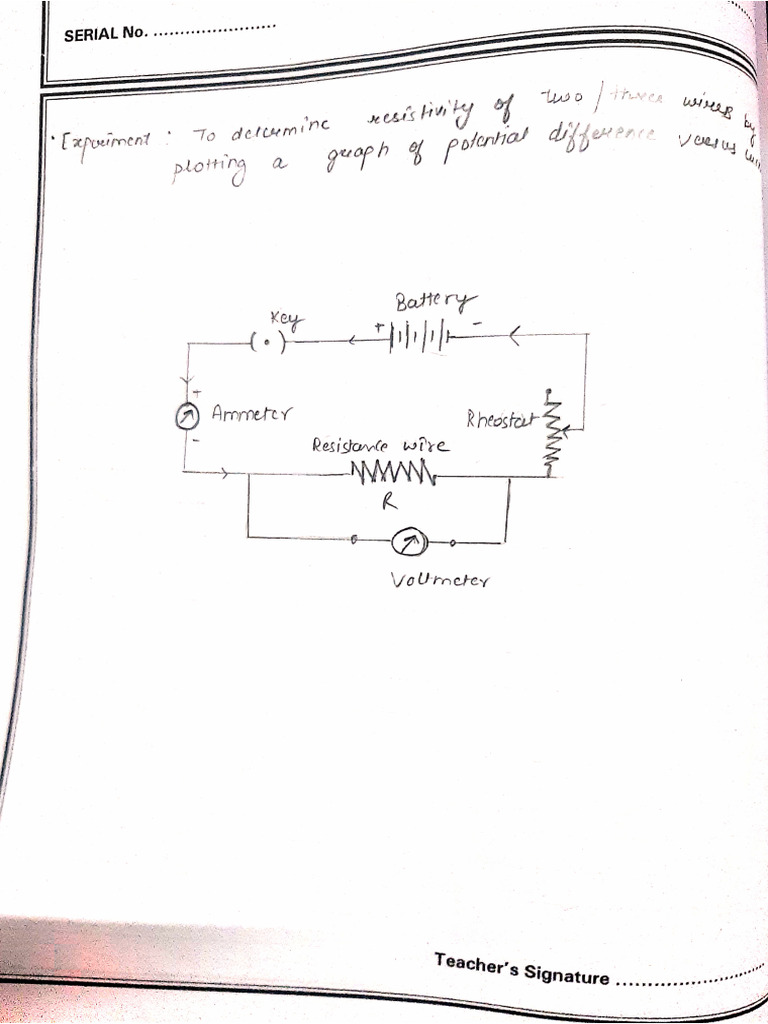 SERIAL No. .......................
• Experiment : To determine resistivity of two / three wires by
plotting a graph of potential difference versus
Battery
Key
+ -
+
Ammeter
Rheostat
-
Resistance wire
R
Voltmeter
Teacher's Signature ..........................